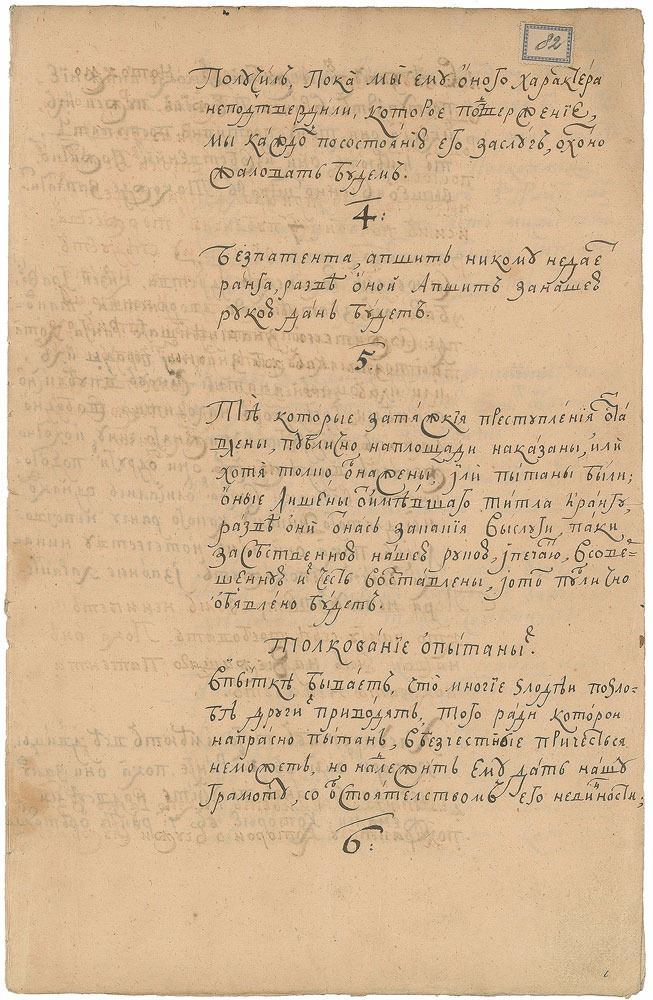 82
Получилъ, пока мы ему оного характера
неподтвердили, которое потверженіе,
мы каждому посостоянію его заслугъ, охотно
жаловать будемъ.
4:
Безпатента, апшитъ никому недает
ранга, развѣ оной апшитъ занашею
рукою данъ будетъ.
5.
Тѣ которые затяжкія преступленія
публично наплощади наказаны, или
хотя толко обнажены, или пытаны были;
оные лишены отимѣвшаго титла и рангу,
развѣ они отнасъ заванія выслуги, паки
засобственною нашею рукою, и печатью, в совѣ-
шенную их честь возставлены, и о томъ публично
объявлено будетъ.
Толкованіе опытаных.
Впыткѣ бываетъ, что многіе злодѣи позло-
бѣ другихъ приводятъ, того ради которой
напрасно пытанъ, в безчестные причесться
неможетъ, но надлежитъ ему дать нашу
грамоту, со обстоятелствомъ его невинности;
6: